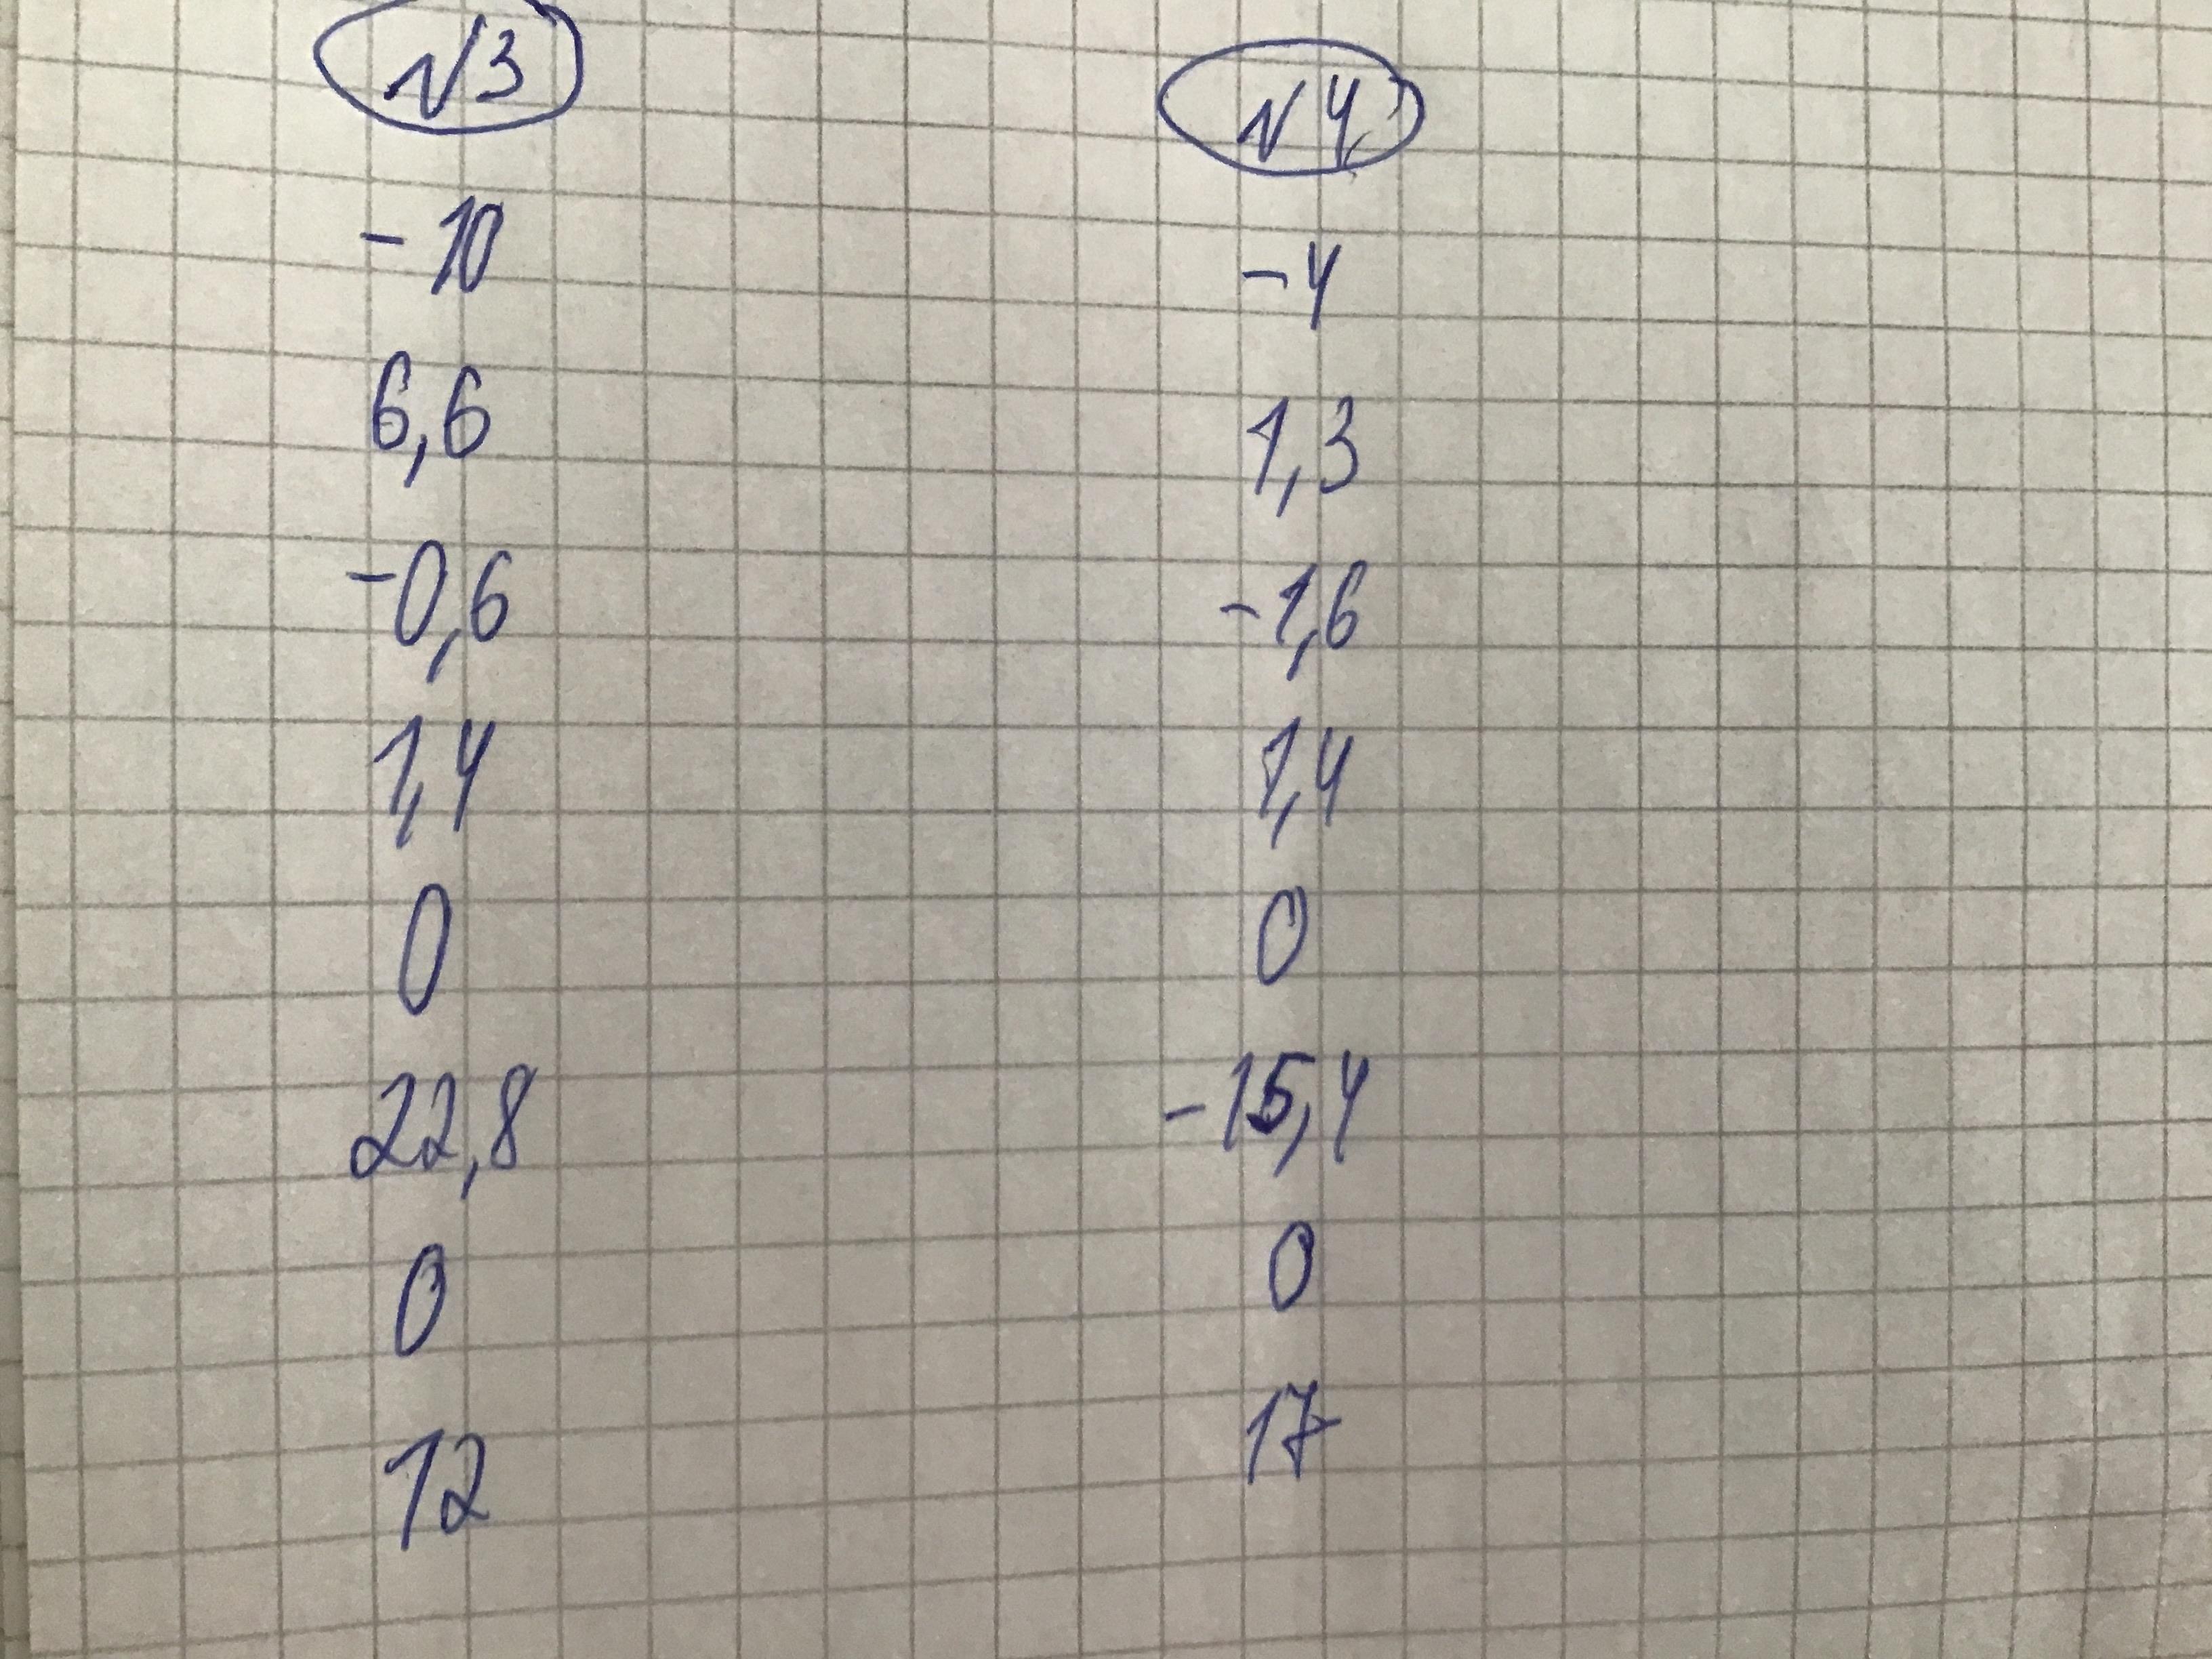 №3
-10
6,6
-0,6
1,4
0
22,8
0
12
№4
-4
1,3
-1,6
1,4
0
-15,4
0
17